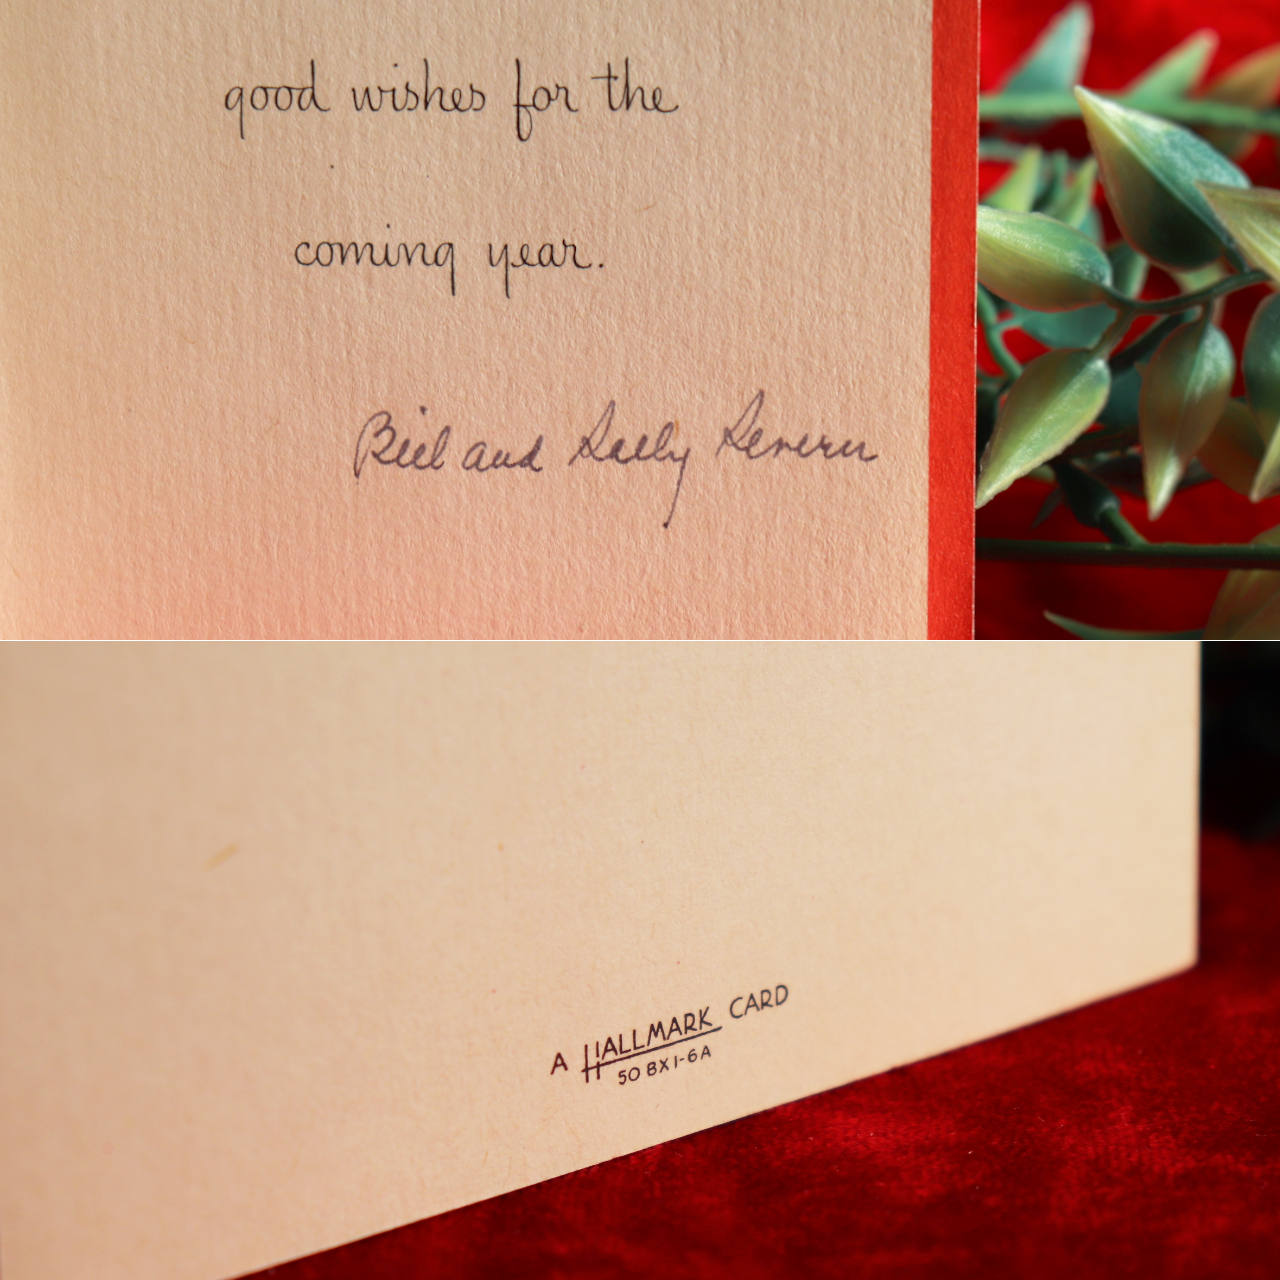 good wishes for the
coming year.
Bill and Sally Severn
A HALLMARK CARD
50 BX1-6A